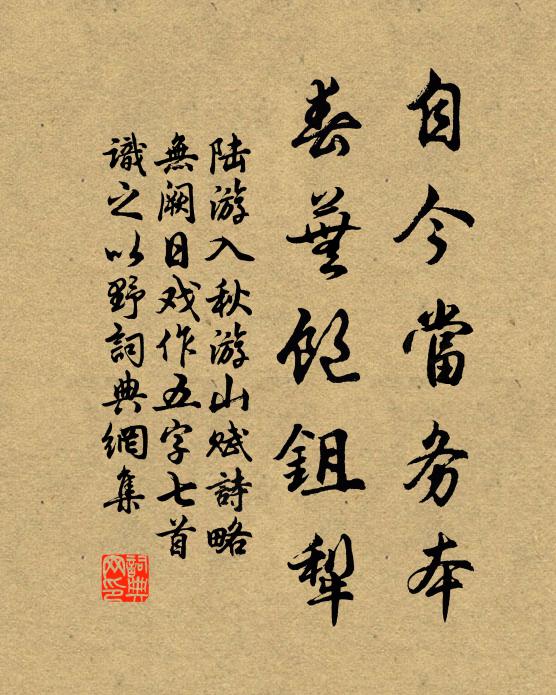 自今當务本
春蕪飽鉏犁
陆游入秋游山赋詩略
無阙日戏作五字七首
識之以野詞典網集
詞典网印